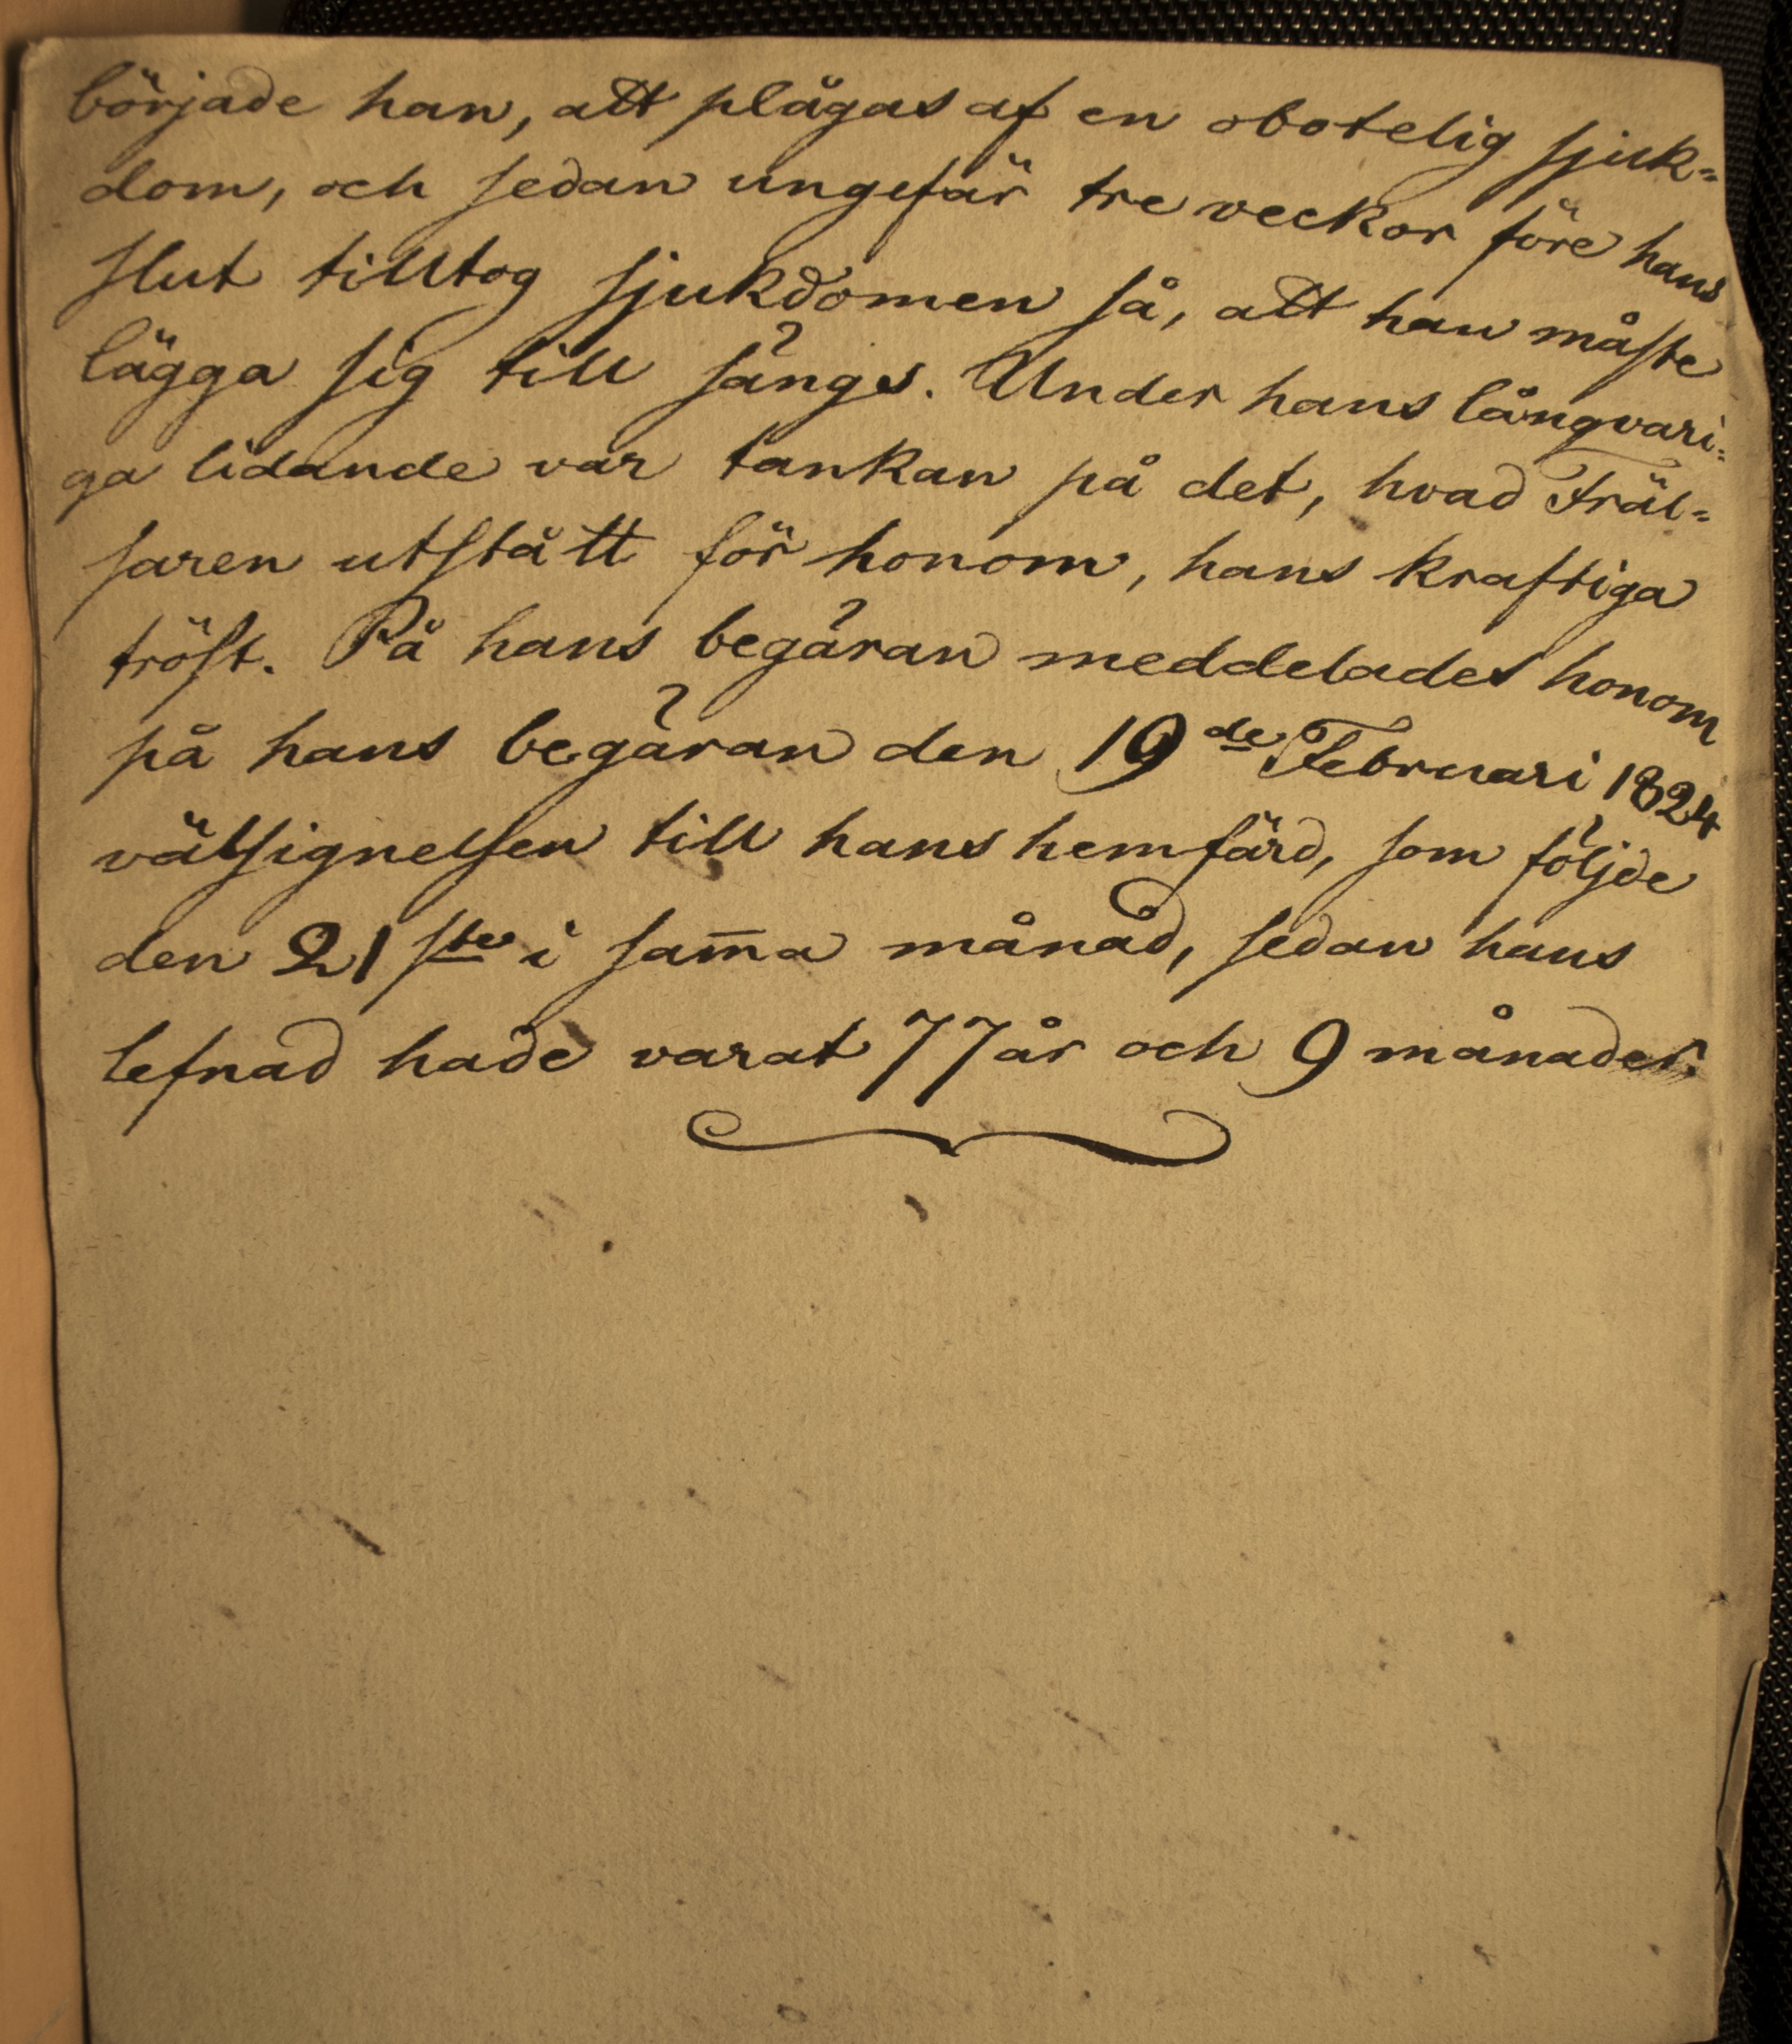 började han, att plågas af en obotelig sjuk=
dom, och sedan ungefär tre veckor före hans
slut tilltog sjukdomen så, att han måste
lägga sig till sängs. Under hans långvari=
ga lidande var tankan på det, hvad Fräl=
saren utstått för honom, hans kraftiga
tröst. På hans begäran meddelades honom
på hans begäran den 19de Februari 1824
välsignelsen till hans hemfärd, som följde
den 21ste i sam̅a månad, sedan hans
lefnad hade varat 77 år och 9 månader.